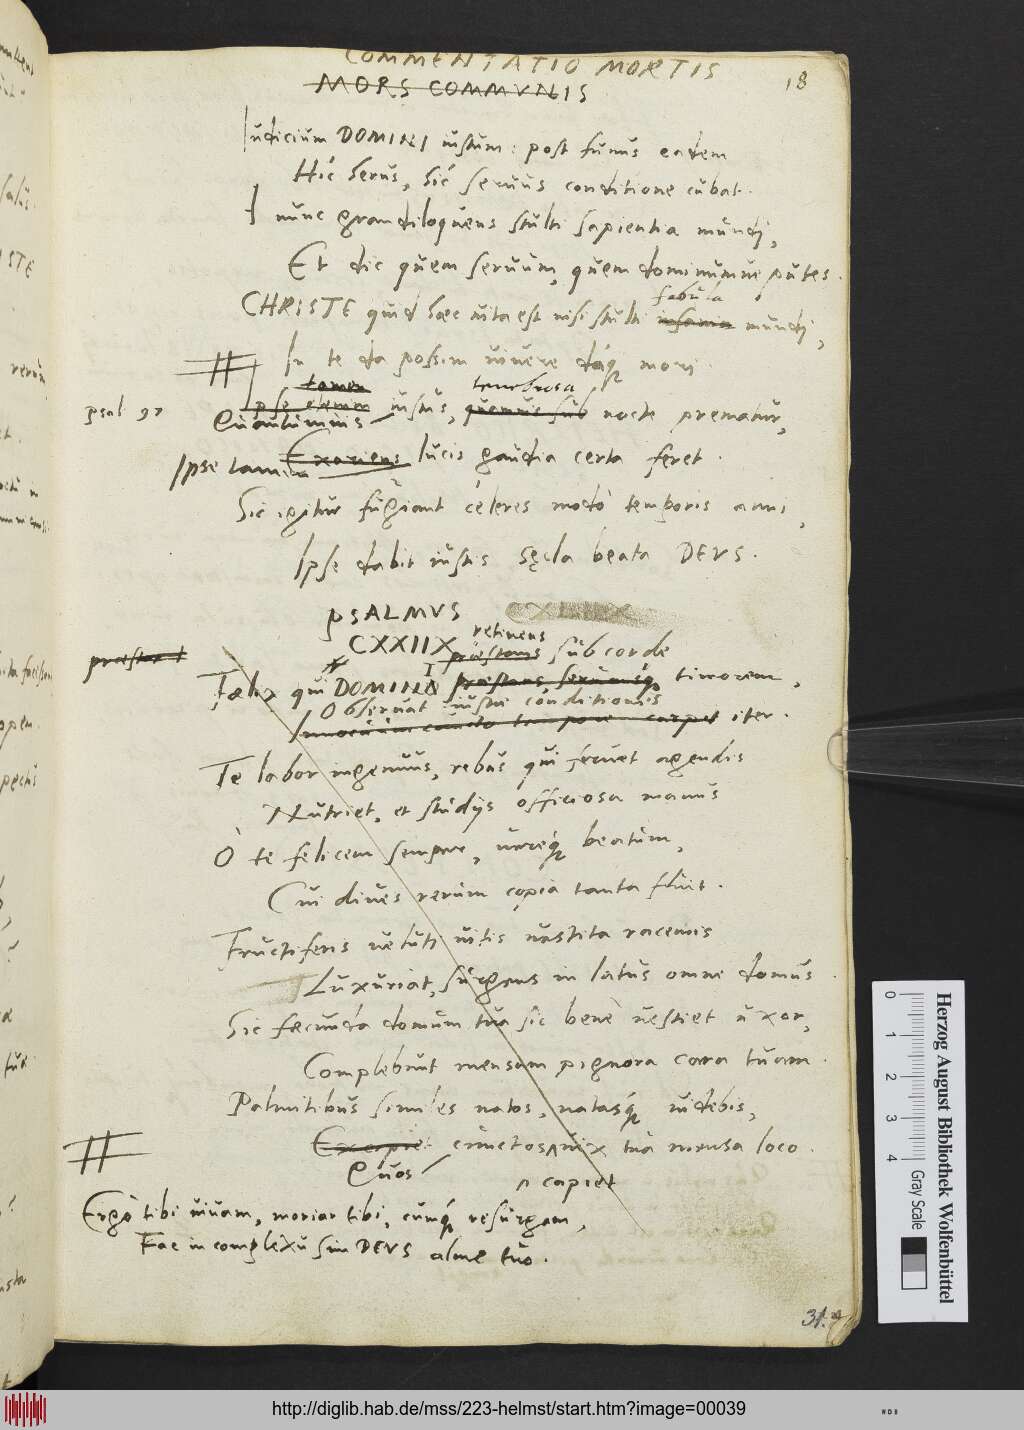 COMMENTATIO MORTIS
MORS COMMVNIS
18
Iudicium DOMINI iustum: post funus eadem
Hic herus, hic seruus conditione cubat.
I nunc grandiloquens stulti sapientia mundi,
Et dic quem seruum, quem dominumue putes.
fabula
CHRISTE quid haec uita est nisi stulti insania mundi,
In te da possim uiuere daque mori.
tamen tenebrosa
psal 97
Ipse etenim iustus, quamuis sub nocte prematur,
Quantumuis
Ipse tamen Exoriens lucis gaudia certa feret.
Sic igitur fugiant celeres modo temporis anni,
Ipse dabit iustis sęcla beata DEVS.
PSALMVS
CXXIIX
retinens
praestans sub corde
Faelix qui DOMINI seruansque timorem,
Obseruat iustae conditionis
tempore carpet iter.
Te labor ingenuus, rebus qui feruet agendis
Nutriet, et studijs officiosa manus
O te felicem semper, uereque beatum,
Cui diues rerum copia tanta fluit.
Fructiferis ueluti uitis uastita racemis
Luxuriat, surgens in latus omne domus.
Sic faecunda domum tua sic bene uestiet uxor,
Complebunt mensam pignora cara tuam.
Palmitibus similes natos, natasque uidebis,
Excipiet cunctos uix tua mensa loco.
Quos
capiet
Ergo tibi uiuam, moriar tibi, cumque resurgam,
Fac in complexu sim DEVS alme tuo.
31.
Herzog August Bibliothek Wolfenbüttel
0 1 2 3 4
Gray Scale
http://diglib.hab.de/mss/223-helmst/start.htm?image=00039